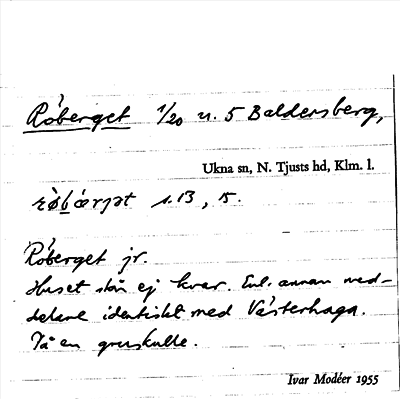 Röberget 1/20 u. 5 Baldersberg,
Ukna sn, N. Tjusts hd, Klm. l.
s. 13, 15.
Röberget jr.
Huset står ej kvar. Enl. annan med-
delare identiskt med Västerhaga.
På en gruskulle.
Ivar Modéer 1955